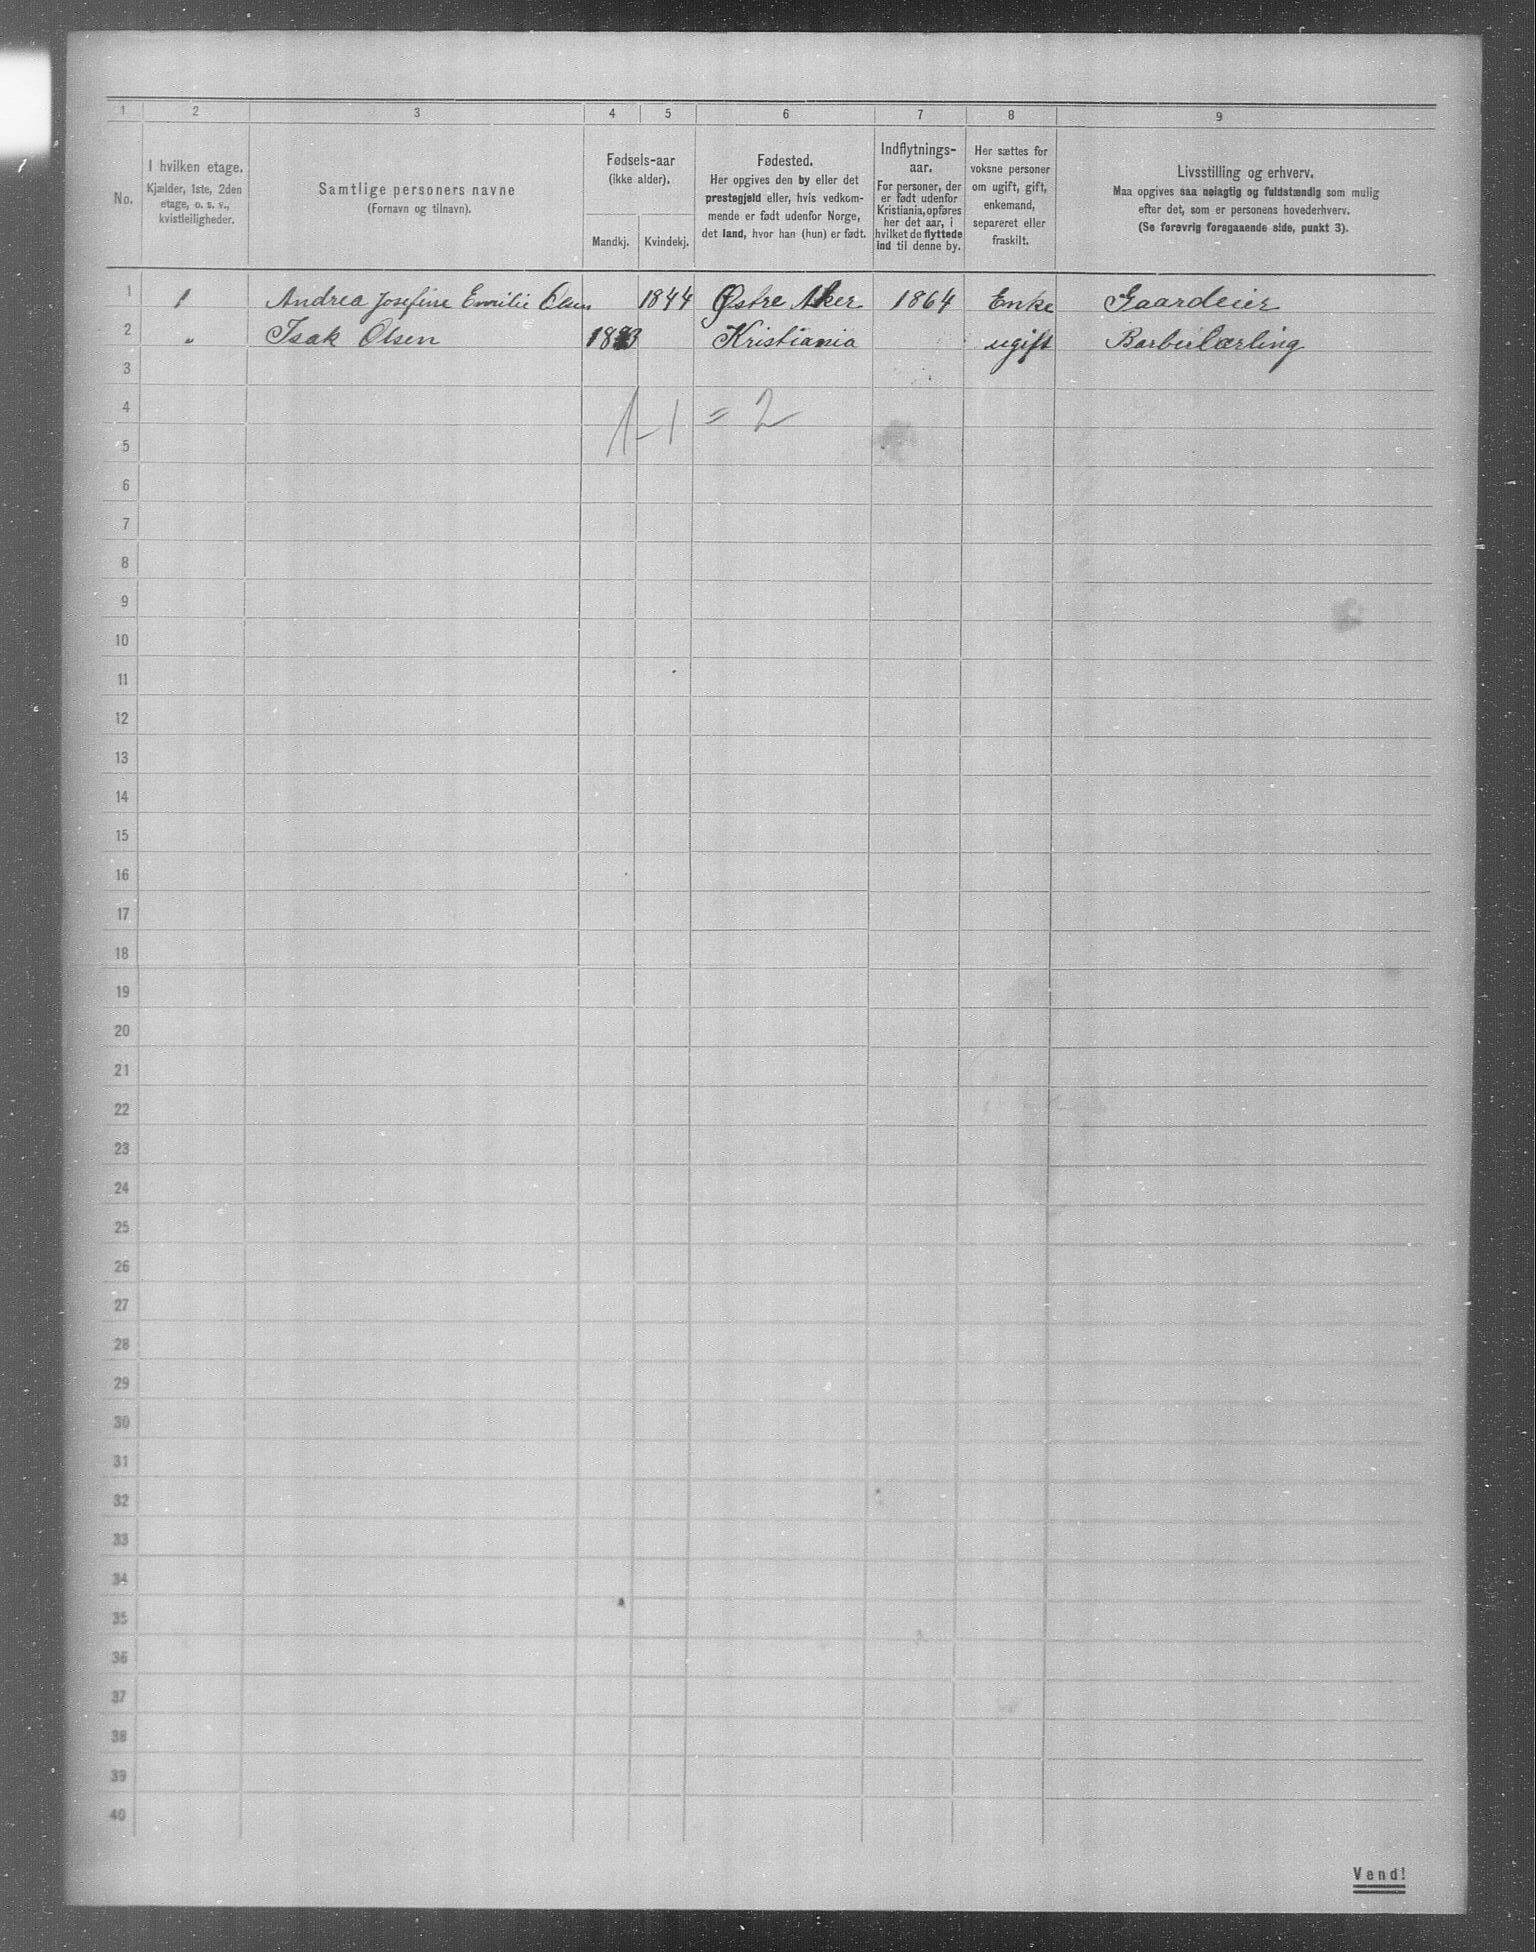 1 2 3 4 5 6 7 8 9
No.
I hvilken etage.
Kjælder, 1ste, 2den
etage, o. s. v.,
kvistleiligheder.
Samtlige personers navne
(Fornavn og tilnavn).
Fødsels-aar
(ikke alder).
Mandkj. Kvindekj.
Fødested.
Her opgives den by eller det
prestegjeld eller, hvis vedkom-
mende er født udenfor Norge,
det land, hvor han (hun) er født.
Indflytnings-
aar.
For personer, der
er født udenfor
Kristiania, opføres
her det aar, i
hvilket de flyttede
ind til denne by.
Her sættes for
voksne personer
om ugift, gift,
enkemand,
separeret eller
fraskilt.
Livsstilling og erhverv.
Maa opgives saa nøiagtig og fuldstændig som mulig
efter det, som er personens hovederhverv.
(Se forøvrig foregaaende side, punkt 3).
1 1 Andrea Josefine Emilie Olsen 1844 Østre Aker 1864 Enke Gaardeier
2 „ Isak Olsen Kristiania ugift Barberlærling
3
4 1-1 = 2
5
6
7
8
9
10
11
12
13
14
15
16
17
18
19
20
21
22
23
24
25
26
27
28
29
30
31
32
33
34
35
36
37
38
39
40
Vend!